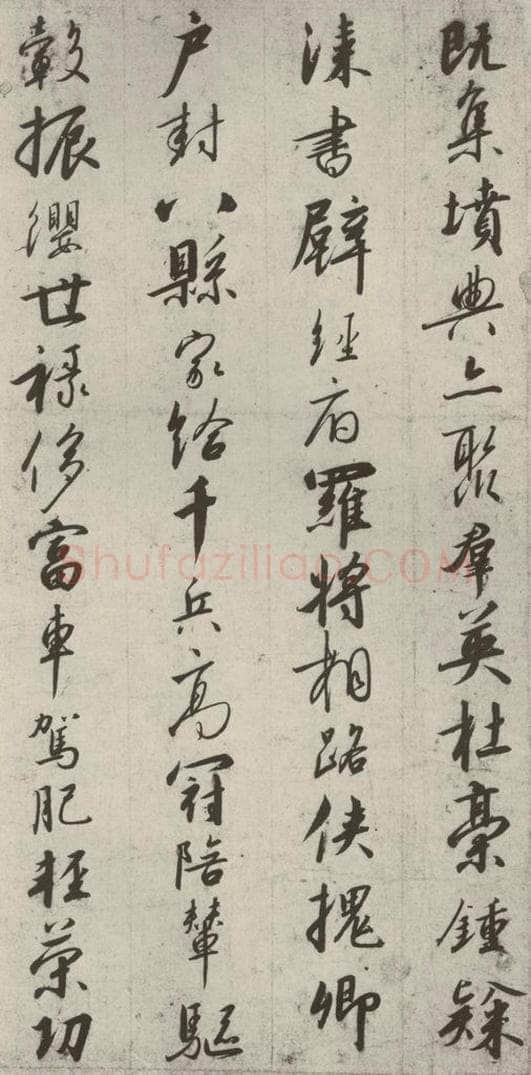 既集墳典亦聚群英杜稾鍾隸
漆書壁經府羅將相路俠槐卿
户封八縣家給千兵高冠陪輦驅
轂振纓世祿侈富車駕肥輕策功
shufaziliao.COM